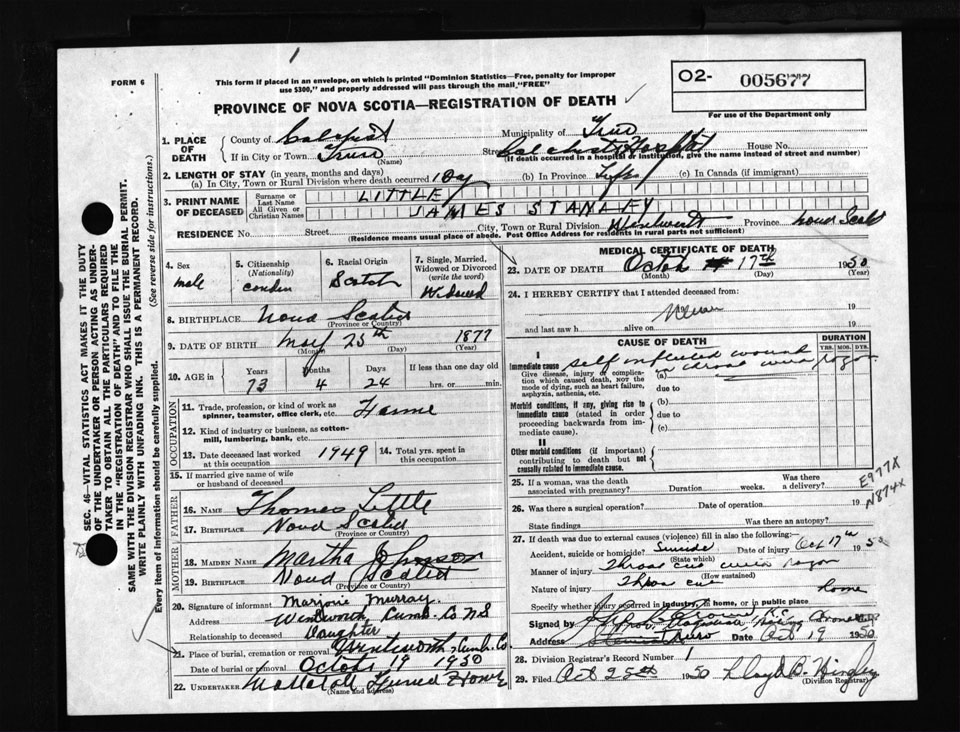 1
FORM 6
This form if placed in an envelope, on which is printed "Dominion Statistics—Free, penalty for improper
use $300," and properly addressed will pass through the mail "FREE"
O2- 005677
For use of the Department only
PROVINCE OF NOVA SCOTIA—REGISTRATION OF DEATH
SEC. 46—VITAL STATISTICS ACT MAKES IT THE DUTY
OF THE UNDERTAKER OR PERSON ACTING AS UNDER-
TAKER TO OBTAIN ALL THE PARTICULARS REQUIRED
IN THE "REGISTRATION OF DEATH" AND TO FILE THE
SAME WITH THE DIVISION REGISTRAR WHO SHALL ISSUE THE BURIAL PERMIT.
WRITE PLAINLY WITH UNFADING INK. THIS IS A PERMANENT RECORD.
Every item of information should be carefully supplied. (See reverse side for instructions.)
1. PLACE OF DEATH
County of Municipality of
If in City or Town Truro Street Hospital House No.
(Name) (If death occurred in a hospital or institution, give the name instead of street and number)
2. LENGTH OF STAY (in years, months and days)
(a) In City, Town or Rural Division where death occurred 1 Day (b) In Province Life (c) In Canada (if immigrant)
3. PRINT NAME OF DECEASED
Surname or Last Name LITTLE
All Given or Christian Names JAMES STANLEY
RESIDENCE No. Street City, Town or Rural Division Wentworth Province
(Residence means usual place of abode. Post Office Address for residents in rural parts not sufficient)
4. Sex male
5. Citizenship (Nationality)
6. Racial Origin Scotch
7. Single, Married, Widowed or Divorced (write the word)
8. BIRTHPLACE
(Province or Country)
9. DATE OF BIRTH May 25th 1877
(Month) (Day) (Year)
10. AGE in Years Months Days If less than one day old
73 4 24 hrs. or min.
OCCUPATION
11. Trade, profession, or kind of work as spinner, teamster, office clerk, etc.
12. Kind of industry or business, as cotton-mill, lumbering, bank, etc.
13. Date deceased last worked at this occupation 1949
14. Total yrs. spent in this occupation
15. If married give name of wife or husband of deceased
FATHER
16. NAME Thomas Little
17. BIRTHPLACE
(Province or Country)
MOTHER
18. MAIDEN NAME Martha Johnson
19. BIRTHPLACE
(Province or Country)
20. Signature of informant Marjorie Murray
Address Wentworth Cumb. Co N S
Relationship to deceased Daughter
21. Place of burial, cremation or removal Wentworth Cumb. Co.
Date of burial or removal 19 1950
22. UNDERTAKER
(Name and address)
MEDICAL CERTIFICATE OF DEATH
23. DATE OF DEATH 17th 1950
(Month) (Day) (Year)
24. I HEREBY CERTIFY that I attended deceased from:
Never 19
and last saw h alive on 19
CAUSE OF DEATH
DURATION
YRS. MOS. DYS.
I
Immediate cause (a) Self inflicted wound
Give disease, injury or complication which caused death, NOT the mode of dying, such as heart failure, asphyxia, asthenia, etc.
due to
Morbid conditions, if any, giving rise to immediate cause (stated in order proceeding backwards from immediate cause).
(b)
due to
(c)
II
Other morbid conditions (if important) contributing to death but not causally related to immediate cause.
25. If a woman, was the death associated with pregnancy? Duration weeks. Was there a delivery?
26. Was there a surgical operation? Date of operation 19
State findings Was there an autopsy?
E977X
N874X
27. If death was due to external causes (violence) fill in also the following:—
Accident, suicide or homicide? Suicide Date of injury Oct 17th 1950
(State which)
Manner of injury
(How sustained)
Nature of injury
Specify whether injury occurred in industry, in home, or in public place home
Signed by
Address Truro Date Oct 19 1950
28. Division Registrar's Record Number 1
29. Filed Oct 25th 1950 Lloyd B. Hingley
(Division Registrar)